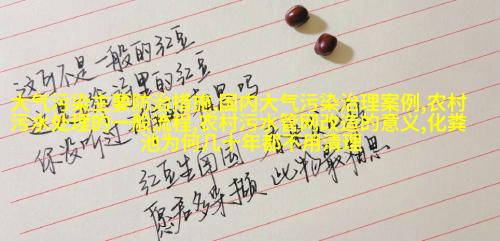 这可不是一般的红豆
里的红豆
大气污染主要防治措施,国内大气污染治理案例,农村
污水处理的一般流程,农村污水管网改造的意义,化粪
池为何几十年都不用清理
你没听过 吗
红豆生南国
愿君多采撷 此物最相思